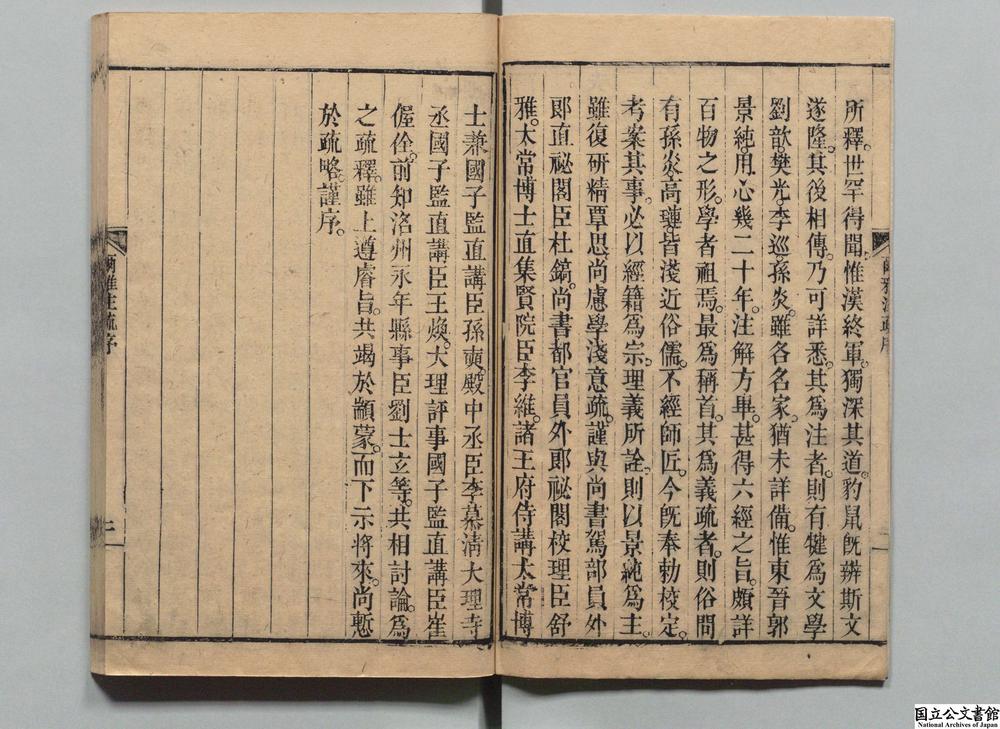 所釋。世罕得聞。惟漢終軍。獨深其道。豹鼠旣辨斯文
遂隆。其後相傳。乃可詳悉。其爲注者。則有犍爲文學
劉歆。樊光。李巡。孫炎。雖各名家。猶未詳備。惟東晉郭
景純。用心幾二十年。注解方畢。甚得六經之旨。頗詳
百物之形。學者祖焉。最爲稱首。其爲義疏者。則俗間
有孫炎。高璉。皆淺近俗儒。不經師匠。今旣奉勅校定。
考案其事。必以經籍爲宗。理義所詮。則以景純爲主。
雖復研精覃思。尚慮學淺意疏。謹與尚書駕部員外
郎直祕閣臣杜鎬。尚書都官員外郎祕閣校理臣舒
雅。太常博士直集賢院臣李維。諸王府侍講太常博
士兼國子監直講臣孫奭。殿中丞臣李慕清。大理寺
丞國子監直講臣王煥。大理評事國子監直講臣崔
偓佺。前知洺州永年縣事臣劉士立等。共相討論。爲
之疏釋。雖上遵睿旨。共竭於顓蒙。而下示將來。尚慙
於疏略。謹序。
爾雅注疏序
一
爾雅注疏序
二
国立公文書館
National Archives of Japan